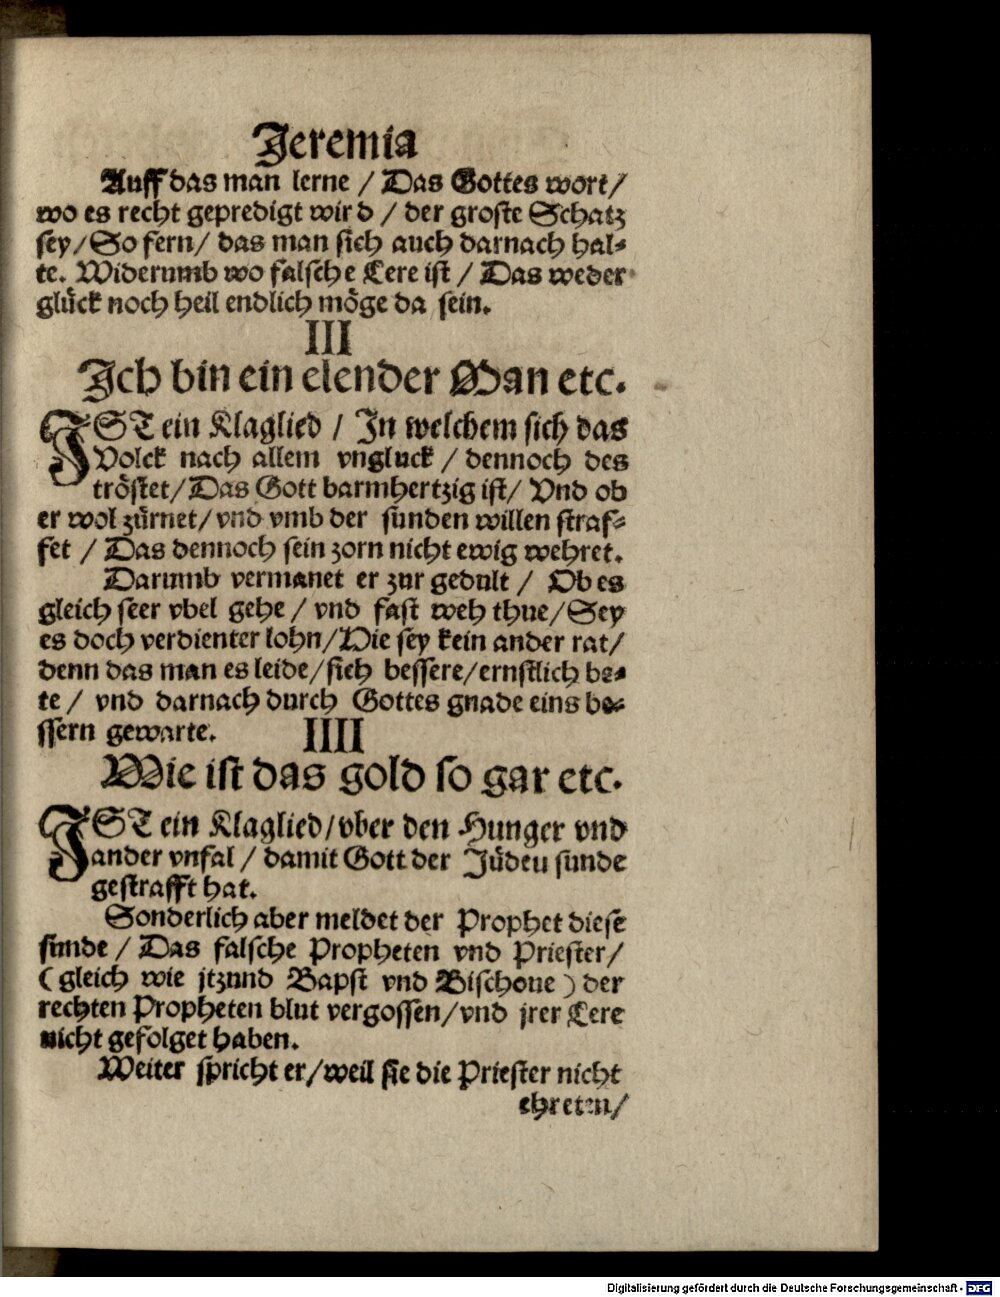 Jeremia
Auff das man lerne / Das Gottes wort/
wo es recht gepredigt wird / der groste Schatz
sey/So fern/ das man sich auch darnach hal-
te. Widerumb wo falsche Lere ist / Das weder
glück noch heil endlich möge da sein.
III
Ich bin ein elender Man etc.
IST ein Klaglied / In welchem sich das
Volck nach allem vngluck / dennoch des
tröstet/Das Gott barmhertzig ist/ Vnd ob
er wol zürnet/vnd vmb der sunden willen straf-
fet / Das dennoch sein zorn nicht ewig wehret.
Darumb vermanet er zur gedult / Ob es
gleich seer vbel gehe / vnd fast weh thue/Sey
es doch verdienter lohn/Hie sey kein ander rat/
denn das man es leide/sich bessere/ernstlich be-
te / vnd darnach durch Gottes gnade eins be-
ssern gewarte.
IIII
Wie ist das gold so gar etc.
IST ein Klaglied/vber den Hunger vnd
ander vnfal / damit Gott der Jüden sunde
gestrafft hat.
Sonderlich aber meldet der Prophet diese
sunde / Das falsche Propheten vnd Priester/
(gleich wie jtzund Bapst vnd Bischoue) der
rechten Propheten blut vergossen/vnd jrer Lere
nicht gefolget haben.
Weiter spricht er/weil sie die Priester nicht
ehreten/
Digitalisierung gefördert durch die Deutsche Forschungsgemeinschaft - DFG